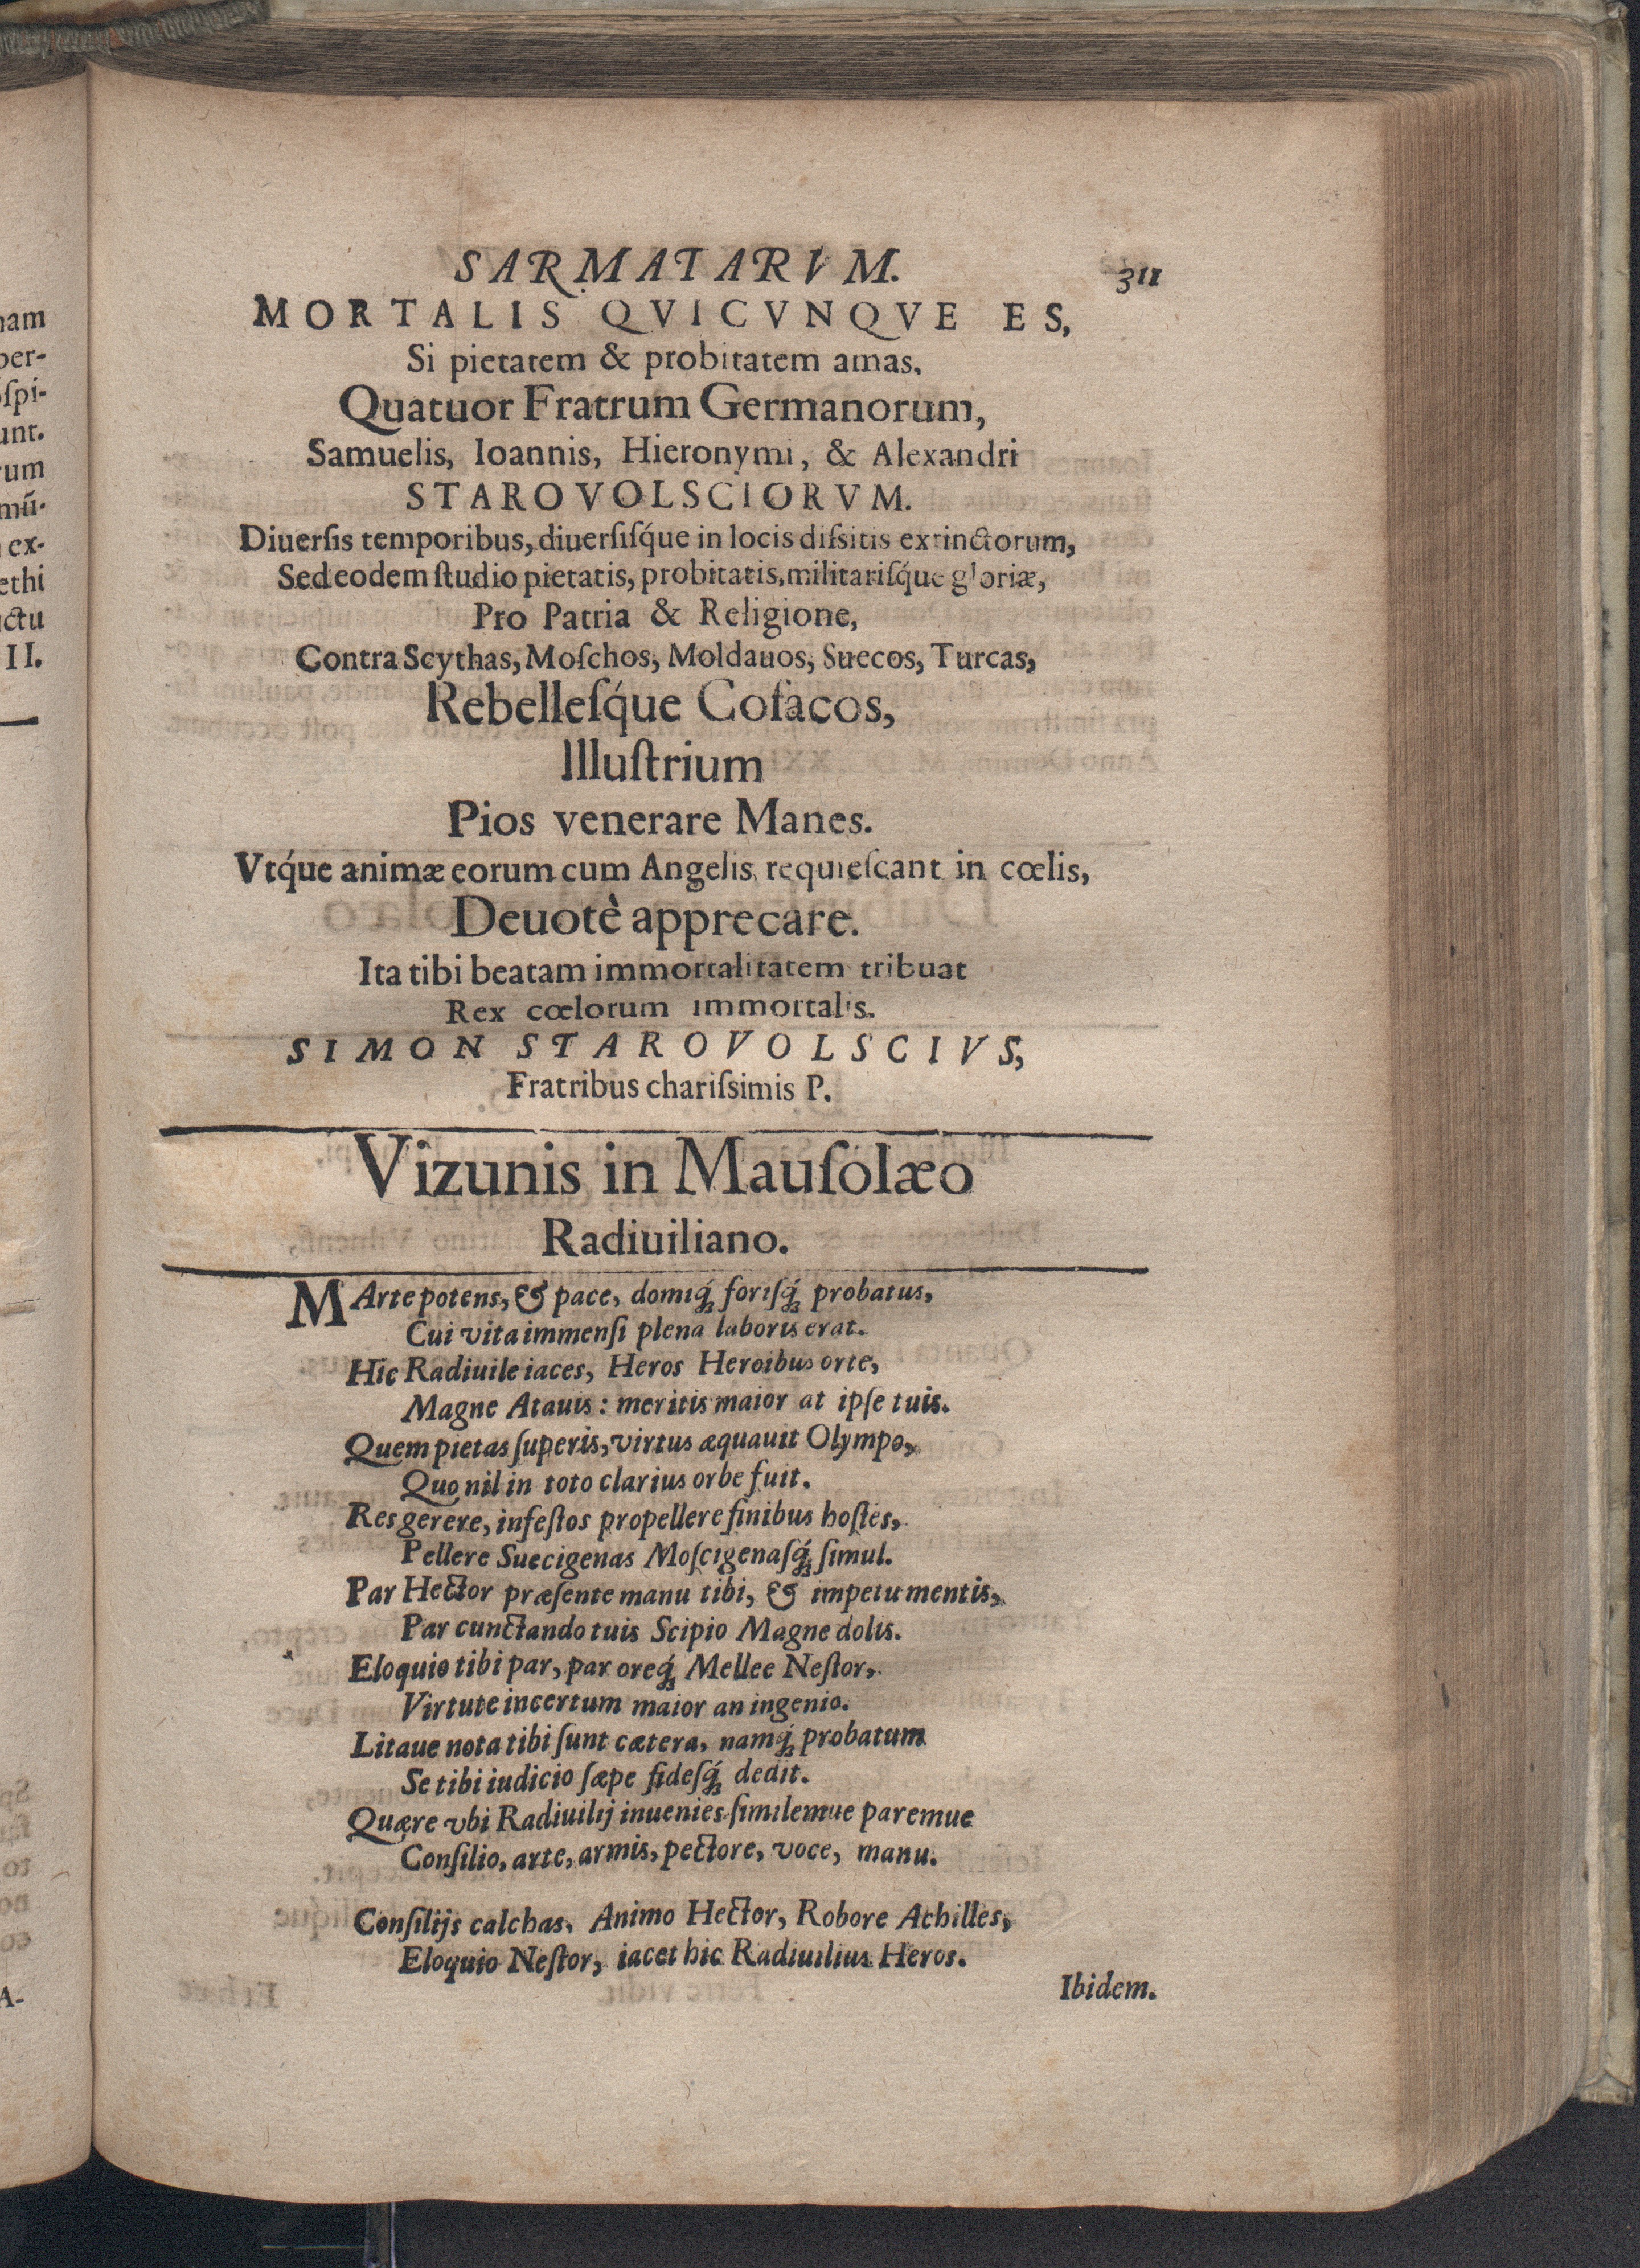 nam
per-
oſpi-
unt.
rum
mũ-
ex-
ethi
ctu
II.
A-
SARMATARVM. 311
MORTALIS QVICVNQVE ES,
Si pietatem & probitatem amas,
Quatuor Fratrum Germanorum,
Samuelis, Ioannis, Hieronymi, & Alexandri
STAROVOLSCIORVM.
Diuerſis temporibus, diuerſiſq́ue in locis diſsitis extinctorum,
Sed eodem ſtudio pietatis, probitatis, militariſq́ue gloriæ,
Pro Patria & Religione,
Contra Scythas, Moſchos, Moldauos, Suecos, Turcas,
Rebelleſq́ue Coſacos,
Illuſtrium
Pios venerare Manes.
Vtq́ue animæ eorum cum Angelis requieſcant in cœlis,
Deuotè apprecare.
Ita tibi beatam immortalitatem tribuat
Rex cœlorum immortalis.
SIMON STAROVOLSCIVS,
Fratribus chariſsimis P.
Vizunis in Mauſolæo
Radiuiliano.
MArte potens, & pace, domiq́; foriſq́; probatus,
Cui vita immenſi plena laboris erat.
Hic Radiuile iaces, Heros Heroibus orte,
Magne Atauis: meritis maior at ipſe tuis.
Quem pietas ſuperis, virtus æquauit Olympo,
Quo nil in toto clarius orbe fuit.
Res gerere, infeſtos propellere finibus hoſtes,
Pellere Suecigenas Moſcigenaſq́; ſimul.
Par Hector præſente manu tibi, & impetu mentis,
Par cunctando tuis Scipio Magne dolis.
Eloquio tibi par, par oreq́; Mellee Neſtor,
Virtute incertum maior an ingenio.
Litaue nota tibi ſunt cætera, namq́; probatum
Se tibi iudicio ſæpe fideſq́; dedit.
Quære vbi Radiuilij inuenies ſimilemue paremue
Conſilio, arte, armis, pectore, voce, manu.
Conſilijs calchas, Animo Hector, Robore Achilles,
Eloquio Neſtor, iacet hic Radiuilius Heros.
Ibidem.